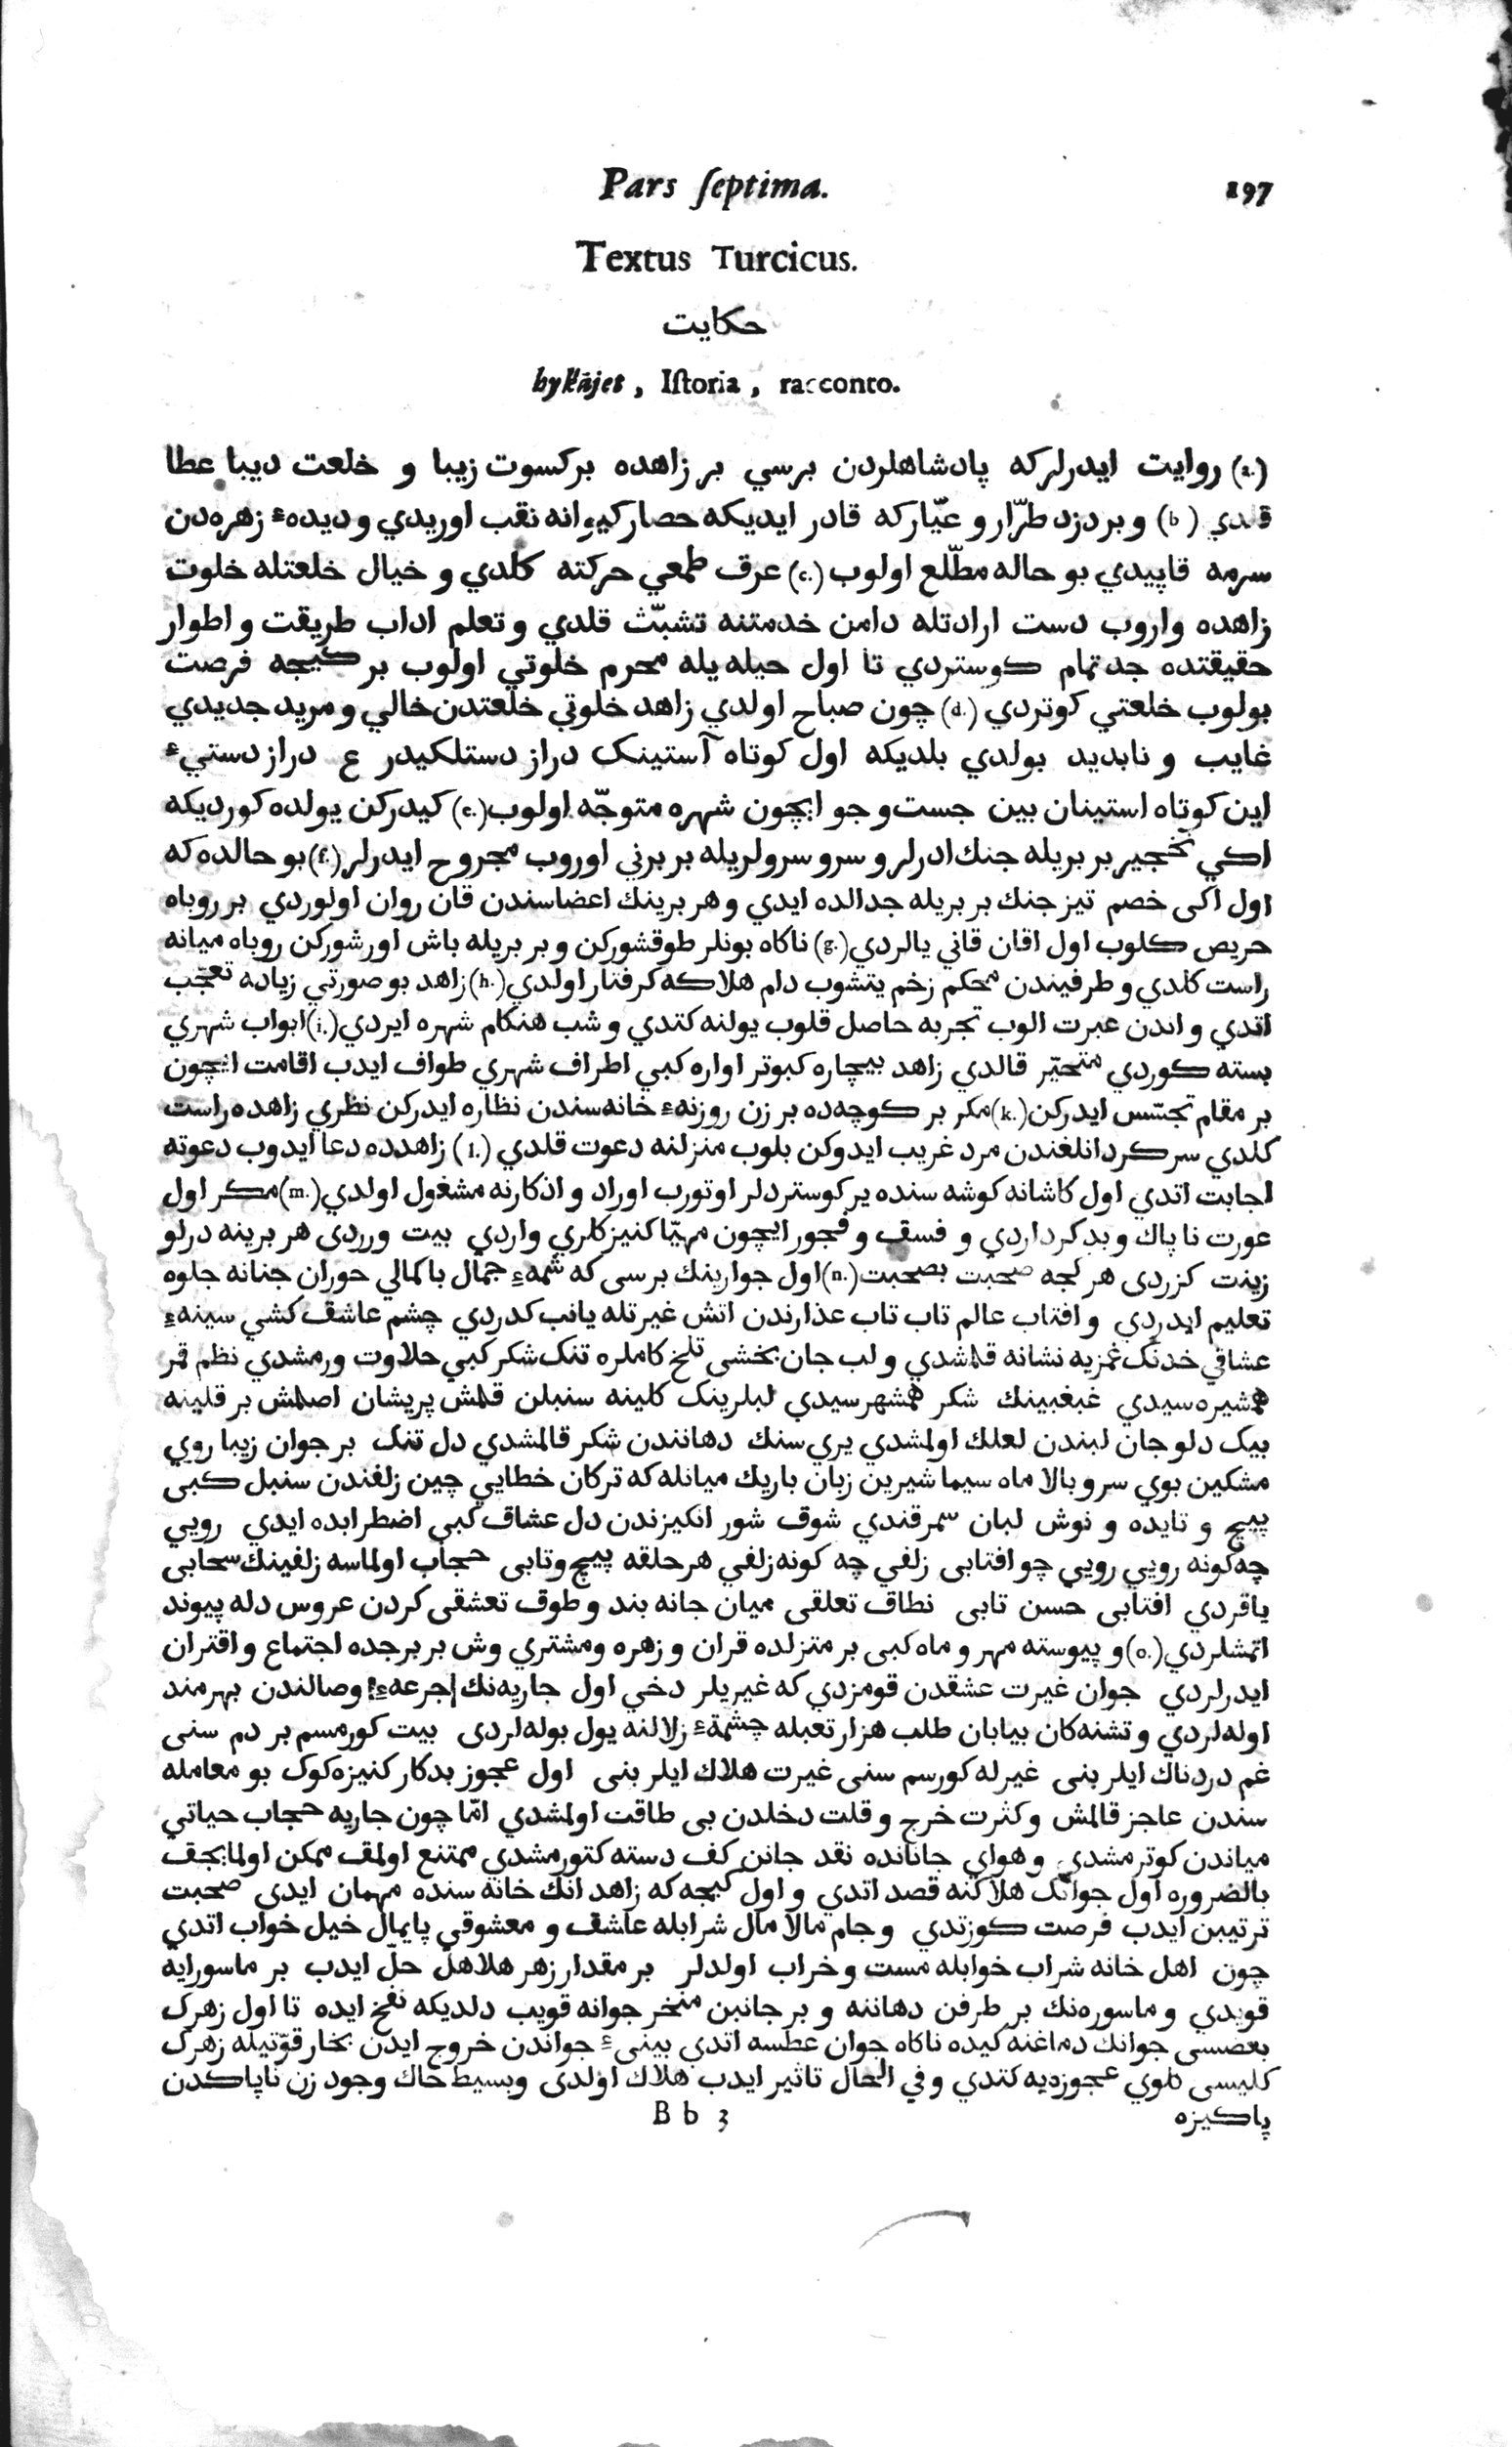 Pars ſeptima. 197
Textus Turcicus.
حكايت
hykājet , Iſtoria , racconto.
(a.) روايت ايدرلركه پادشاهلردن برسي بر زاهده بركسوت زيبا و خلعت ديبا عطا
قلدي (b) وبر دزد طرّار و عيّاركه قادر ايديكه حصار كيوانه نقب اوريدي و ديدهٔ زهره‌دن
سرمه قاپيدي بو حاله مطّلع اولوب (c.) عرق طمعي حركته كلدي و خيال خلعتله خلوت
زاهده واروب دست ارادتله دامن خدمتنه تشبّث قلدي و تعلم اداب طريقت و اطوار
حقيقتده جد تمام كوستردي تا اول حيله يله محرم خلوتي اولوب بر كيجه فرصت
بولوب خلعتي كوتردي (d.) چون صباح اولدي زاهد خلوتي خلعتدن خالي و مريد جديدي
غايب و نابديد بولدي بلديكه اول كوتاه آستينك دراز دستلكيدر ع دراز دستيء
اين كوتاه استينان بين جست و جو ايچون شهره متوجّه اولوب (e.) كيدركن يولده كورديكه
اكي نخجير بر بريله جنك ادرلر و سرو سرولريله بر برني اوروب مجروح ايدرلر (f.) بو حالده كه
اول اكى خصم تيز جنك بر بريله جدالده ايدي و هر برينك اعضاسندن قان روان اولوردي بر روباه
حريص كلوب اول اقان قاني يالردي (g.) ناكاه بونلر طوقشوركن و بر بريله باش اورشوركن روباه ميانه
راست كلدي و طرفيندن محكم زخم يتشوب دام هلاكه كرفتار اولدي (h.) زاهد بو صورتي زياده تعجّب
اتدي و اندن عبرت الوب تجربه حاصل قلوب يولنه كتدي و شب هنكام شهره ايردي (i.) ابواب شهري
بسته كوردي متحيّر قالدي زاهد بيچاره كبوتر اواره كبي اطراف شهري طواف ايدب اقامت ايچون
بر مقام تجسّس ايدركن (k.) مكر بر كوچه‌ده بر زن روزنهٔ خانه‌سندن نظاره ايدركن نظري زاهده راست
كلدي سركردانلغندن مرد غريب ايدوكن بلوب منزلنه دعوت قلدي (l.) زاهدده دعا ايدوب دعوته
اجابت اتدي اول كاشانه كوشه سنده ير كوستردلر اوتورب اوراد و اذكارنه مشغول اولدي (m.) مكر اول
عورت ناپاك و بدكرداردي و فسق و فجور ايچون مهيّا كنيزكلري واردي بيت ورردى هر برينه درلو
زينت كزردى هر كجه صحبت بصحبت (n.) اول جوارينك برسى كه شمهٔ جمال باكمالي حوران جنانه جلوه
تعليم ايدردي و افتاب عالم تاب تاب عذارندن اتش غيرتله يانب كدردي چشم عاشق كشي سينهٔ
عشاقي خدنك غمزيه نشانه قلمشدي و لب جان بخشى تلخ كاملره تنك شكر كبي حلاوت ورمشدي نظم قمر
همشيره سيدي غبغبينك شكر همشهرسيدي لبلرينك كلينه سنبلن قلمش پريشان اصلمش بر قلينه
بيك دلو جان لبندن لعلك اولمشدي يري سنك دهانندن شكر قالمشدي دل تنك بر جوان زيبا روي
مشكين بوي سرو بالا ماه سيما شيرين زبان باريك ميانله كه تركان خطايي چين زلفندن سنبل كبى
پيچ و تابده و نوش لبان سمرقندي شوق شور انكيزندن دل عشاق كبى اضطرابده ايدي رويي
چه كونه رويي رويي چو افتابى زلفي چه كونه زلفي هر حلقه پيچ وتابى حجاب اولماسه زلفينك سحابى
ياقردي افتابى حسن تابى نطاق تعلقى ميان جانه بند و طوق تعشقى كردن عروس دله پيوند
اتمشلردي (o.) و پيوسته مهر و ماه كبى بر منزلده قران و زهره ومشتري وش بر برجده اجتماع و اقتران
ايدرلردي جوان غيرت عشقدن قومزدي كه غيريلر دخي اول جاريه‌نك جرعهٔ وصالندن بهرمند
اوله‌لردي و تشنه‌كان بيابان طلب هزار تعبله چشمهٔ زلالنه يول بوله‌لردى بيت كورمسم بر دم سنى
غم دردناك ايلر بنى غيرله كورسم سنى غيرت هلاك ايلر بنى اول عجوز بدكار كنيزه‌كوك بو معامله
سندن عاجز قالمش و كثرت خرج و قلت دخلدن بى طاقت اولمشدي امّا چون جاريه حجاب حياتي
مياندن كوترمشدي و هواي جاناناده نقد جانن كف دسته كتورمشدي ممتنع اولمق ممكن اولمايجق
بالضروره اول جوانك هلاكنه قصد اتدي و اول كيجه كه زاهد انك خانه سنده مهمان ايدى صحبت
ترتيبن ايدب فرصت كوزتدي و جام مالا مال شرابله عاشق و معشوقي پايمال خيل خواب اتدي
چون اهل خانه شراب خوابله مست و خراب اولدلر بر مقدار زهر هلاهل حلّ ايدب بر ماسورايه
قويدي و ماسوره‌نك بر طرفن دهاننه و بر جانبن منخر جوانه قويب دلديكه نفخ ايده تا اول زهرك
بعضسى جوانك دماغنه كيده ناكاه جوان عطسه اتدي بينىء جواندن خروج ايدن بخار قوّتيله زهرك
كليسى كلوي عجوزه‌يه كتدي و في الحال تاثير ايدب هلاك اولدى وبسيط خاك وجود زن ناپاكدن
B b 3 پاكيزه